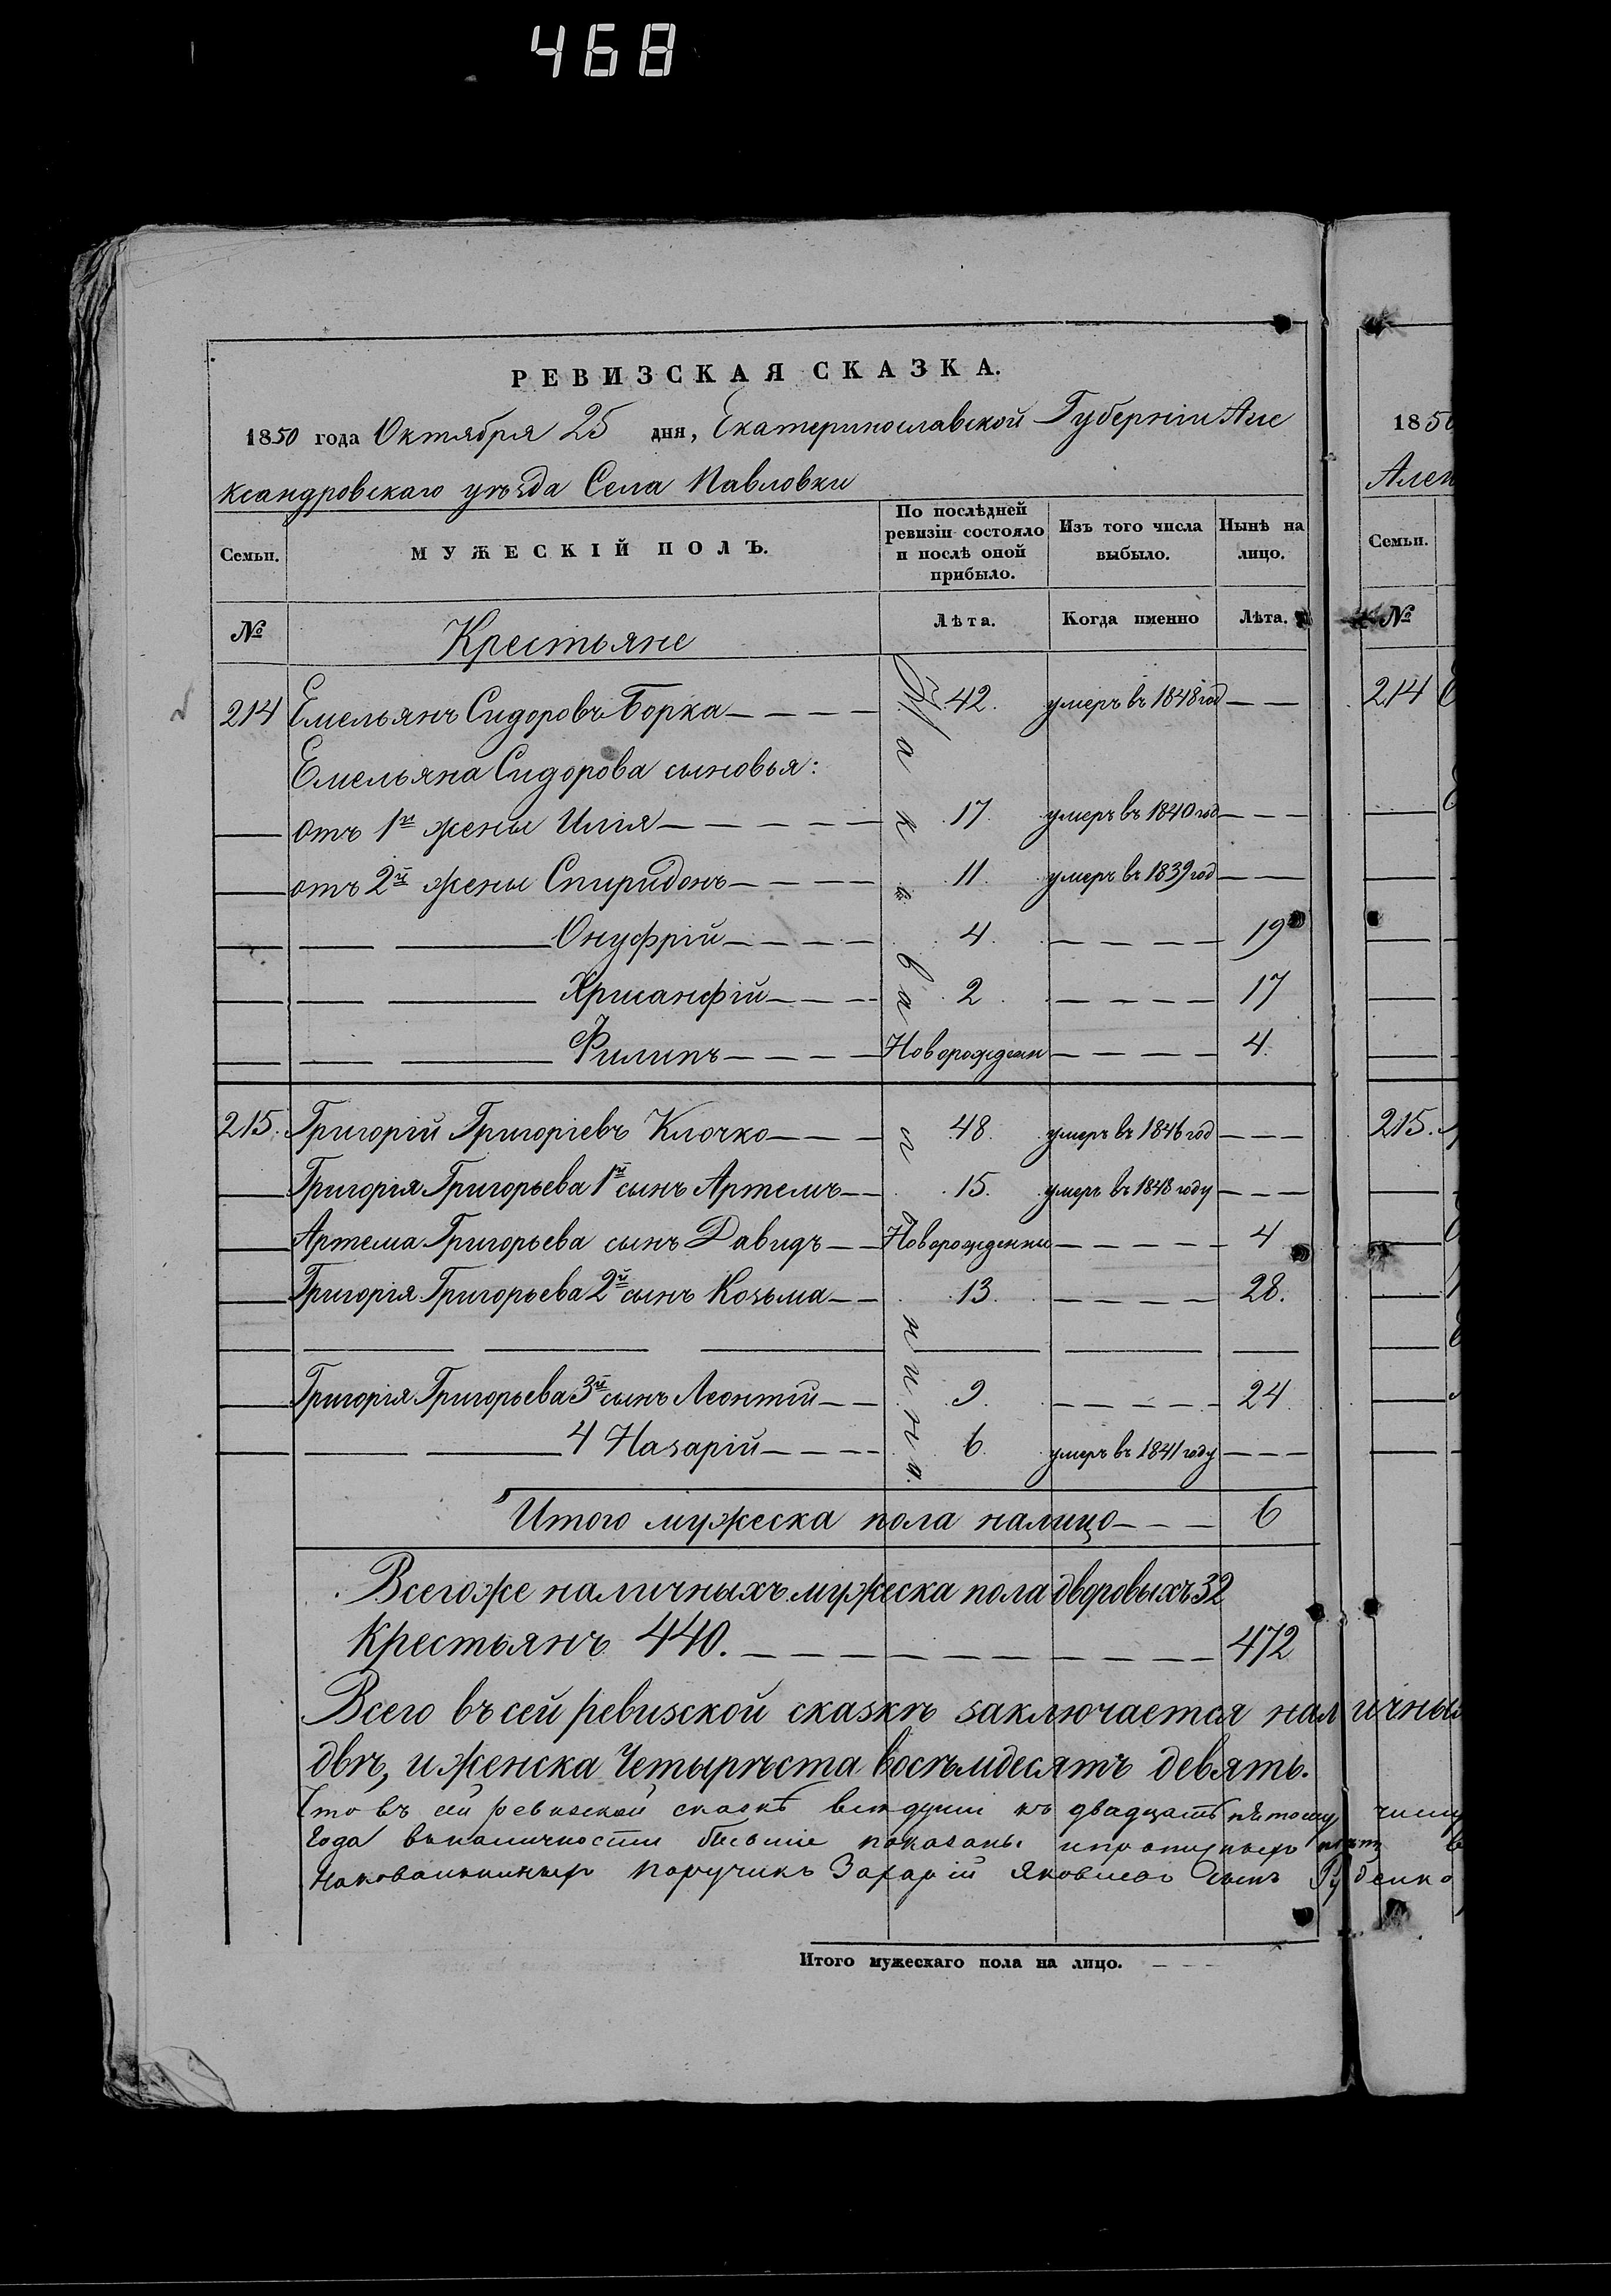 468
РЕВИЗСКАЯ СКАЗКА.
1850 года Октября 25 дня, Екатеринославской Губерніи Але
ксандровскаго уѣзда Села Павловки
Семьи. МУЖЕСКІЙ ПОЛЪ. По послѣдней ревизіи состояло и послѣ оной прибыло. Изъ того числа выбыло. Нынѣ на лицо.
№ Крестьяне Лѣта. Когда именно Лѣта.
214 Емельянъ Сидоровъ Борка 42. умеръ въ 1848 год
Емельяна Сидорова сыновья:
отъ 1й жены Илія 17. умеръ въ 1840 год
отъ 2й жены Спиридонъ 11. умеръ въ 1839 год
Онуфрій 4. 19
Хрисанфій 2. 17
Филипъ Новорожденн 4.
215. Григорій Григоріевъ Клочко 48. умеръ въ 1846 год
Григорія Григорьева 1й сынъ Артемъ 15. умеръ въ 1848 году
Артема Григорьева сынъ Давидъ Новорожденны 4
Григорія Григорьева 2й сынъ Козьма 13. 28.
Григорія Григорьева 3й сынъ Леонтій 9. 24.
4 Назарій 6. умеръ въ 1841 году
Итого мужеска пола налицо 6
Всегоже наличныхъ мужеска пола дворовыхъ 32
Крестьянъ 440. 472
Всего въ сей ревизской сказкѣ заключается наличны
двѣ, и женска Четыреста восемьдесятъ девять.
Что въ сей ревизской сказкѣ всѣ души къ двадцать пятому числу
года въ наличности бывшіе показаны
Поручикъ Захарій Яковлевъ сынъ
Итого мужескаго пола на лицо.
1850
Алек
Семьи.
№
214
215.